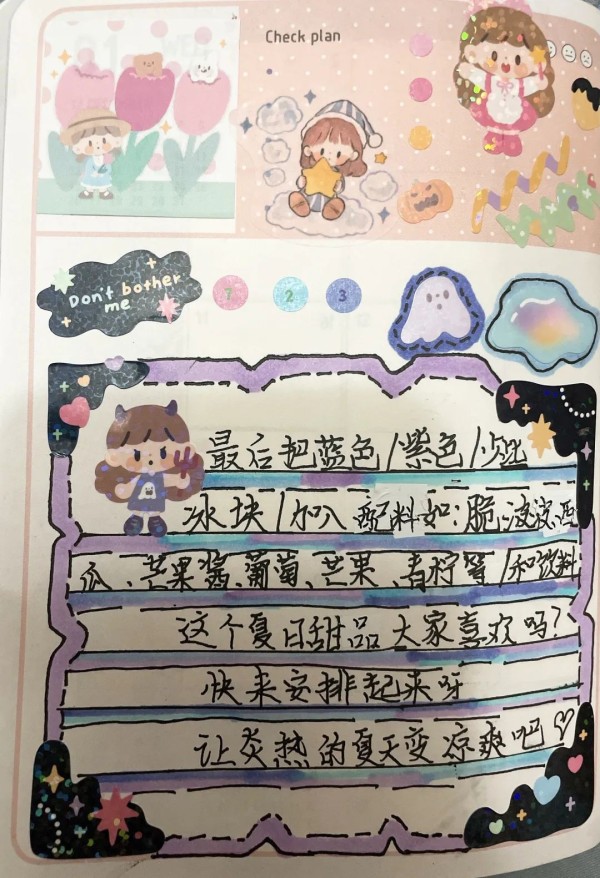 Check plan
Don't bother
me
7 2 3
最后把蓝色/紫色/少比
冰块/加入配料如:脆波波、西
瓜、芒果酱、葡萄、芒果、青柠等/和饮料
这个夏日甜品大家喜欢吗?
快来安排起来呀
让炎热的夏天变凉爽吧♡